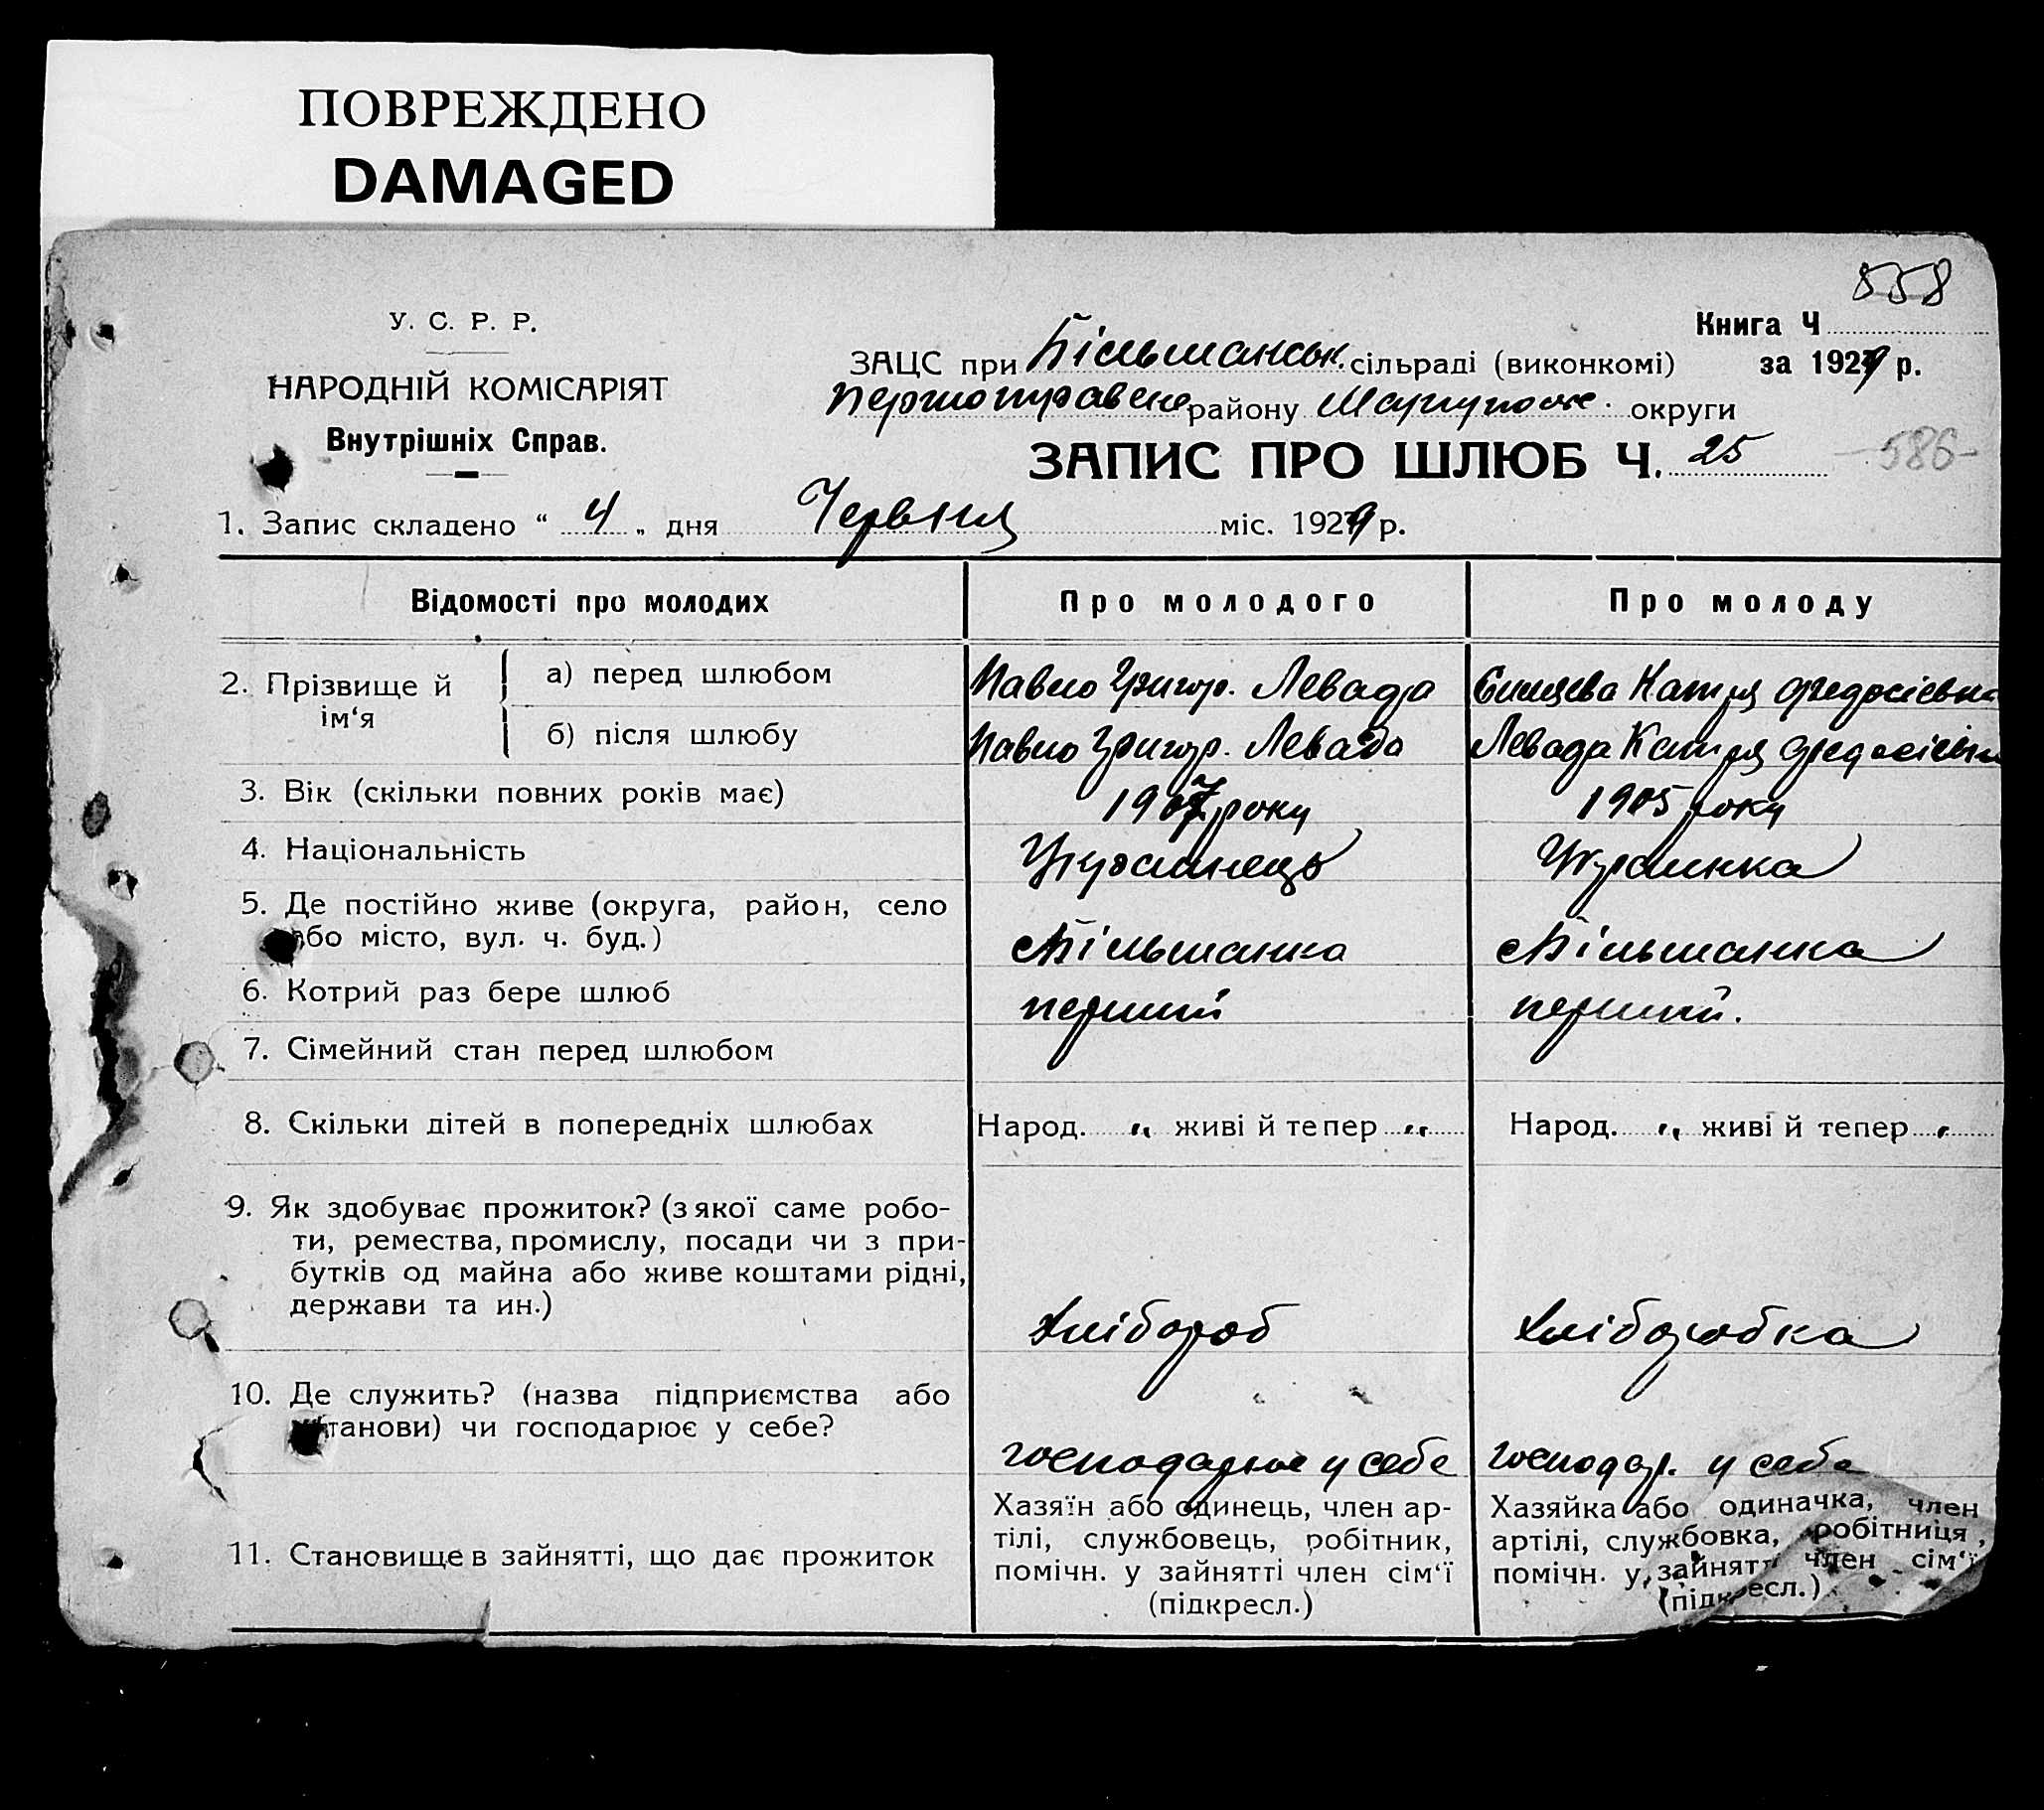 ПОВРЕЖДЕНО
DAMAGED
558
У. С. Р. Р.
НАРОДНІЙ КОМІСАРІЯТ
Внутрішніх Справ.
Книга Ч
ЗАЦС при Більшанськ. сільраді (виконкомі)
за 1929 р.
Першотравене району Маріупольс. округи
ЗАПИС ПРО ШЛЮБ Ч. 25
-586-
1. Запис складено “ 4 „ дня Червня міс. 1929 р.
Відомості про молодих Про молодого Про молоду
2. Прізвище й ім‘я
а) перед шлюбом Павло Григор. Левада Катря Федосієвна
б) після шлюбу Павло Григор. Левада Левада Катря Федосієвна
3. Вік (скільки повних років має) 1907 року 1905 року
4. Національність Українець Українка
5. Де постійно живе (округа, район, село
або місто, вул. ч. буд.) с. Більшанка с. Більшанка
6. Котрий раз бере шлюб перший перший.
7. Сімейний стан перед шлюбом
8. Скільки дітей в попередніх шлюбах Народ. „ живі й тепер „ Народ. „ живі й тепер „
9. Як здобуває прожиток? (з якої саме робо-
ти, ремества, промислу, посади чи з при-
бутків од майна або живе коштами рідні,
держави та ин.) Хлібороб Хліборобка
10. Де служить? (назва підприємства або
установи) чи господарює у себе?
господарює у себе господар. у себе
11. Становище в зайнятті, що дає прожиток
Хазяїн або одинець, член ар-
тілі, службовець, робітник,
помічн. у зайнятті член сім‘ї
(підкресл.)
Хазяйка або одиначка, член
артілі, службовка, робітниця,
помічн. у зайнятті член сім‘ї
(підкресл.)